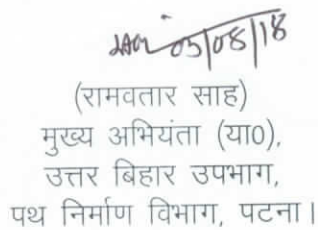 05/08/18
(रामवतार साह)
मुख्य अभियंता (या0),
उत्तर बिहार उपभाग,
पथ निर्माण विभाग, पटना।